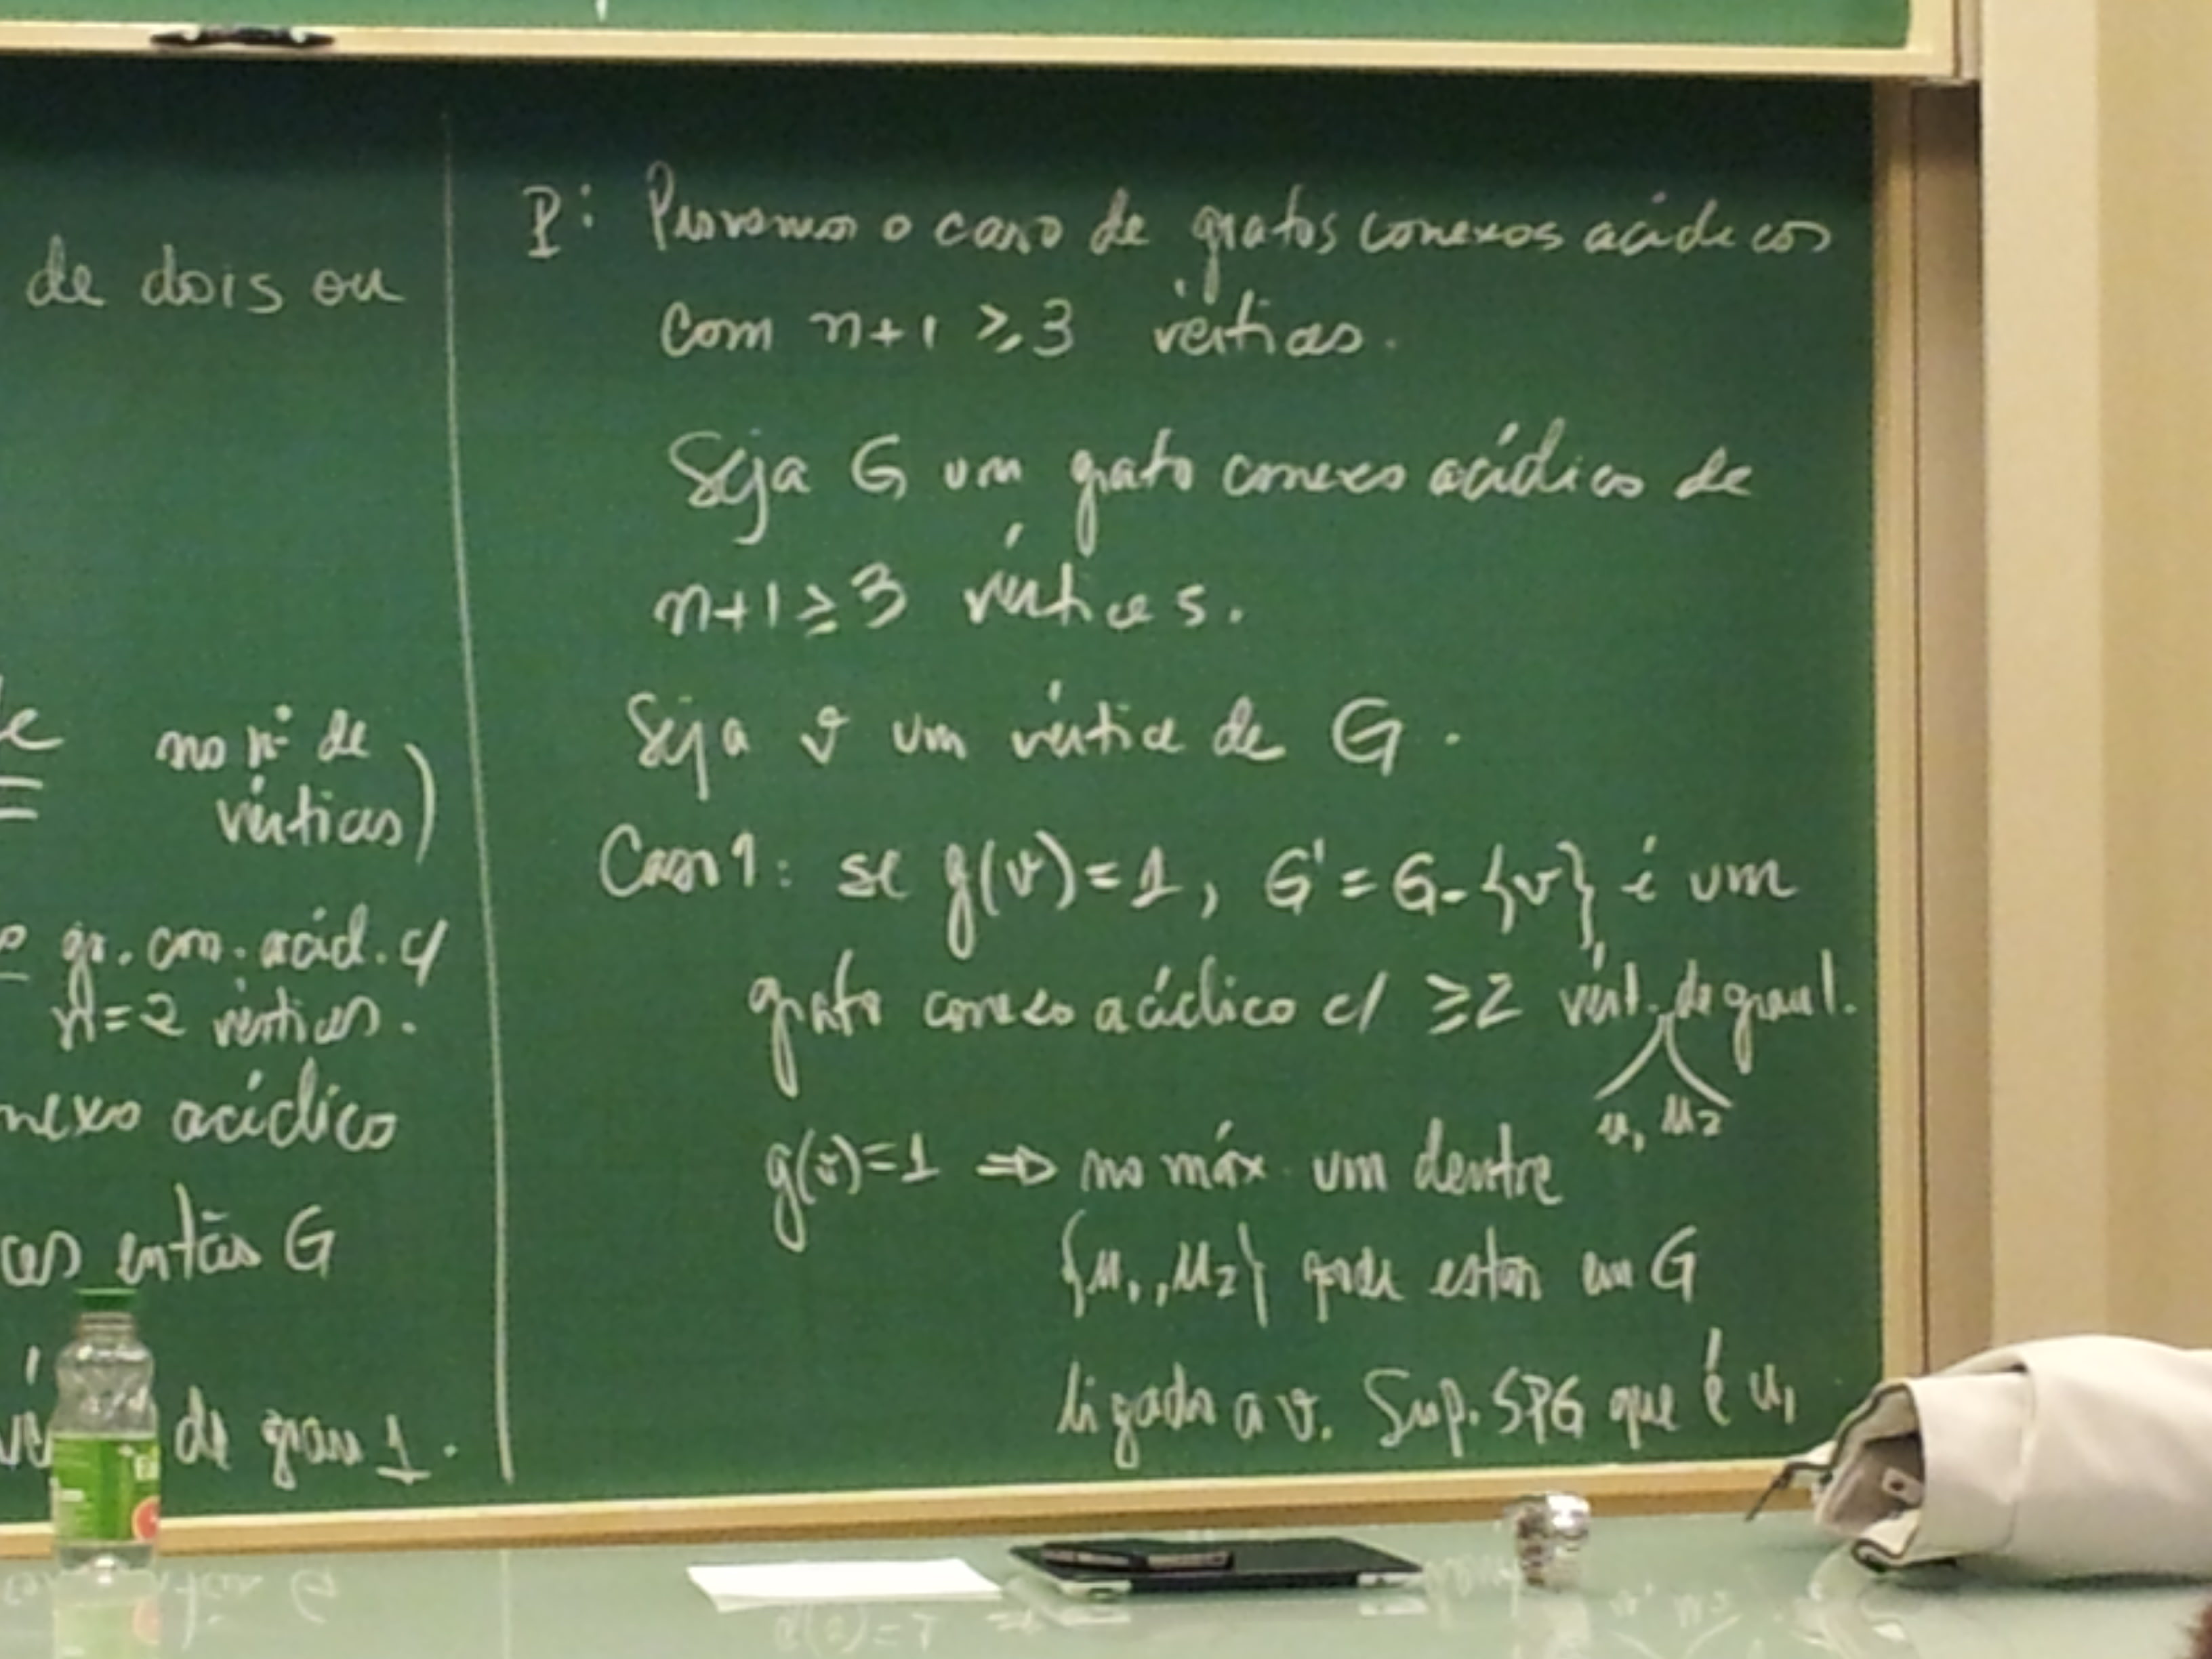 de dois ou
no nº de
vértices)
gr. con. acícl. c/
n=2 vértices.
nexo acíclico
ces então G
de grau 1.
P: Provemos o caso de grafos conexos acíclicos
com n+1 ≥ 3 vértices.
Seja G um grafo conexo acíclico de
n+1 ≥ 3 vértices.
Seja v um vértice de G.
Caso 1: se g(v)=1, G'=G-{v} é um
grafo conexo acíclico c/ ≥2 vért. de grau 1.
u₁ u₂
g(v)=1 ⇒ no máx. um dentre
{u₁, u₂} pode estar em G
ligado a v. Sup. SPG que é u₁